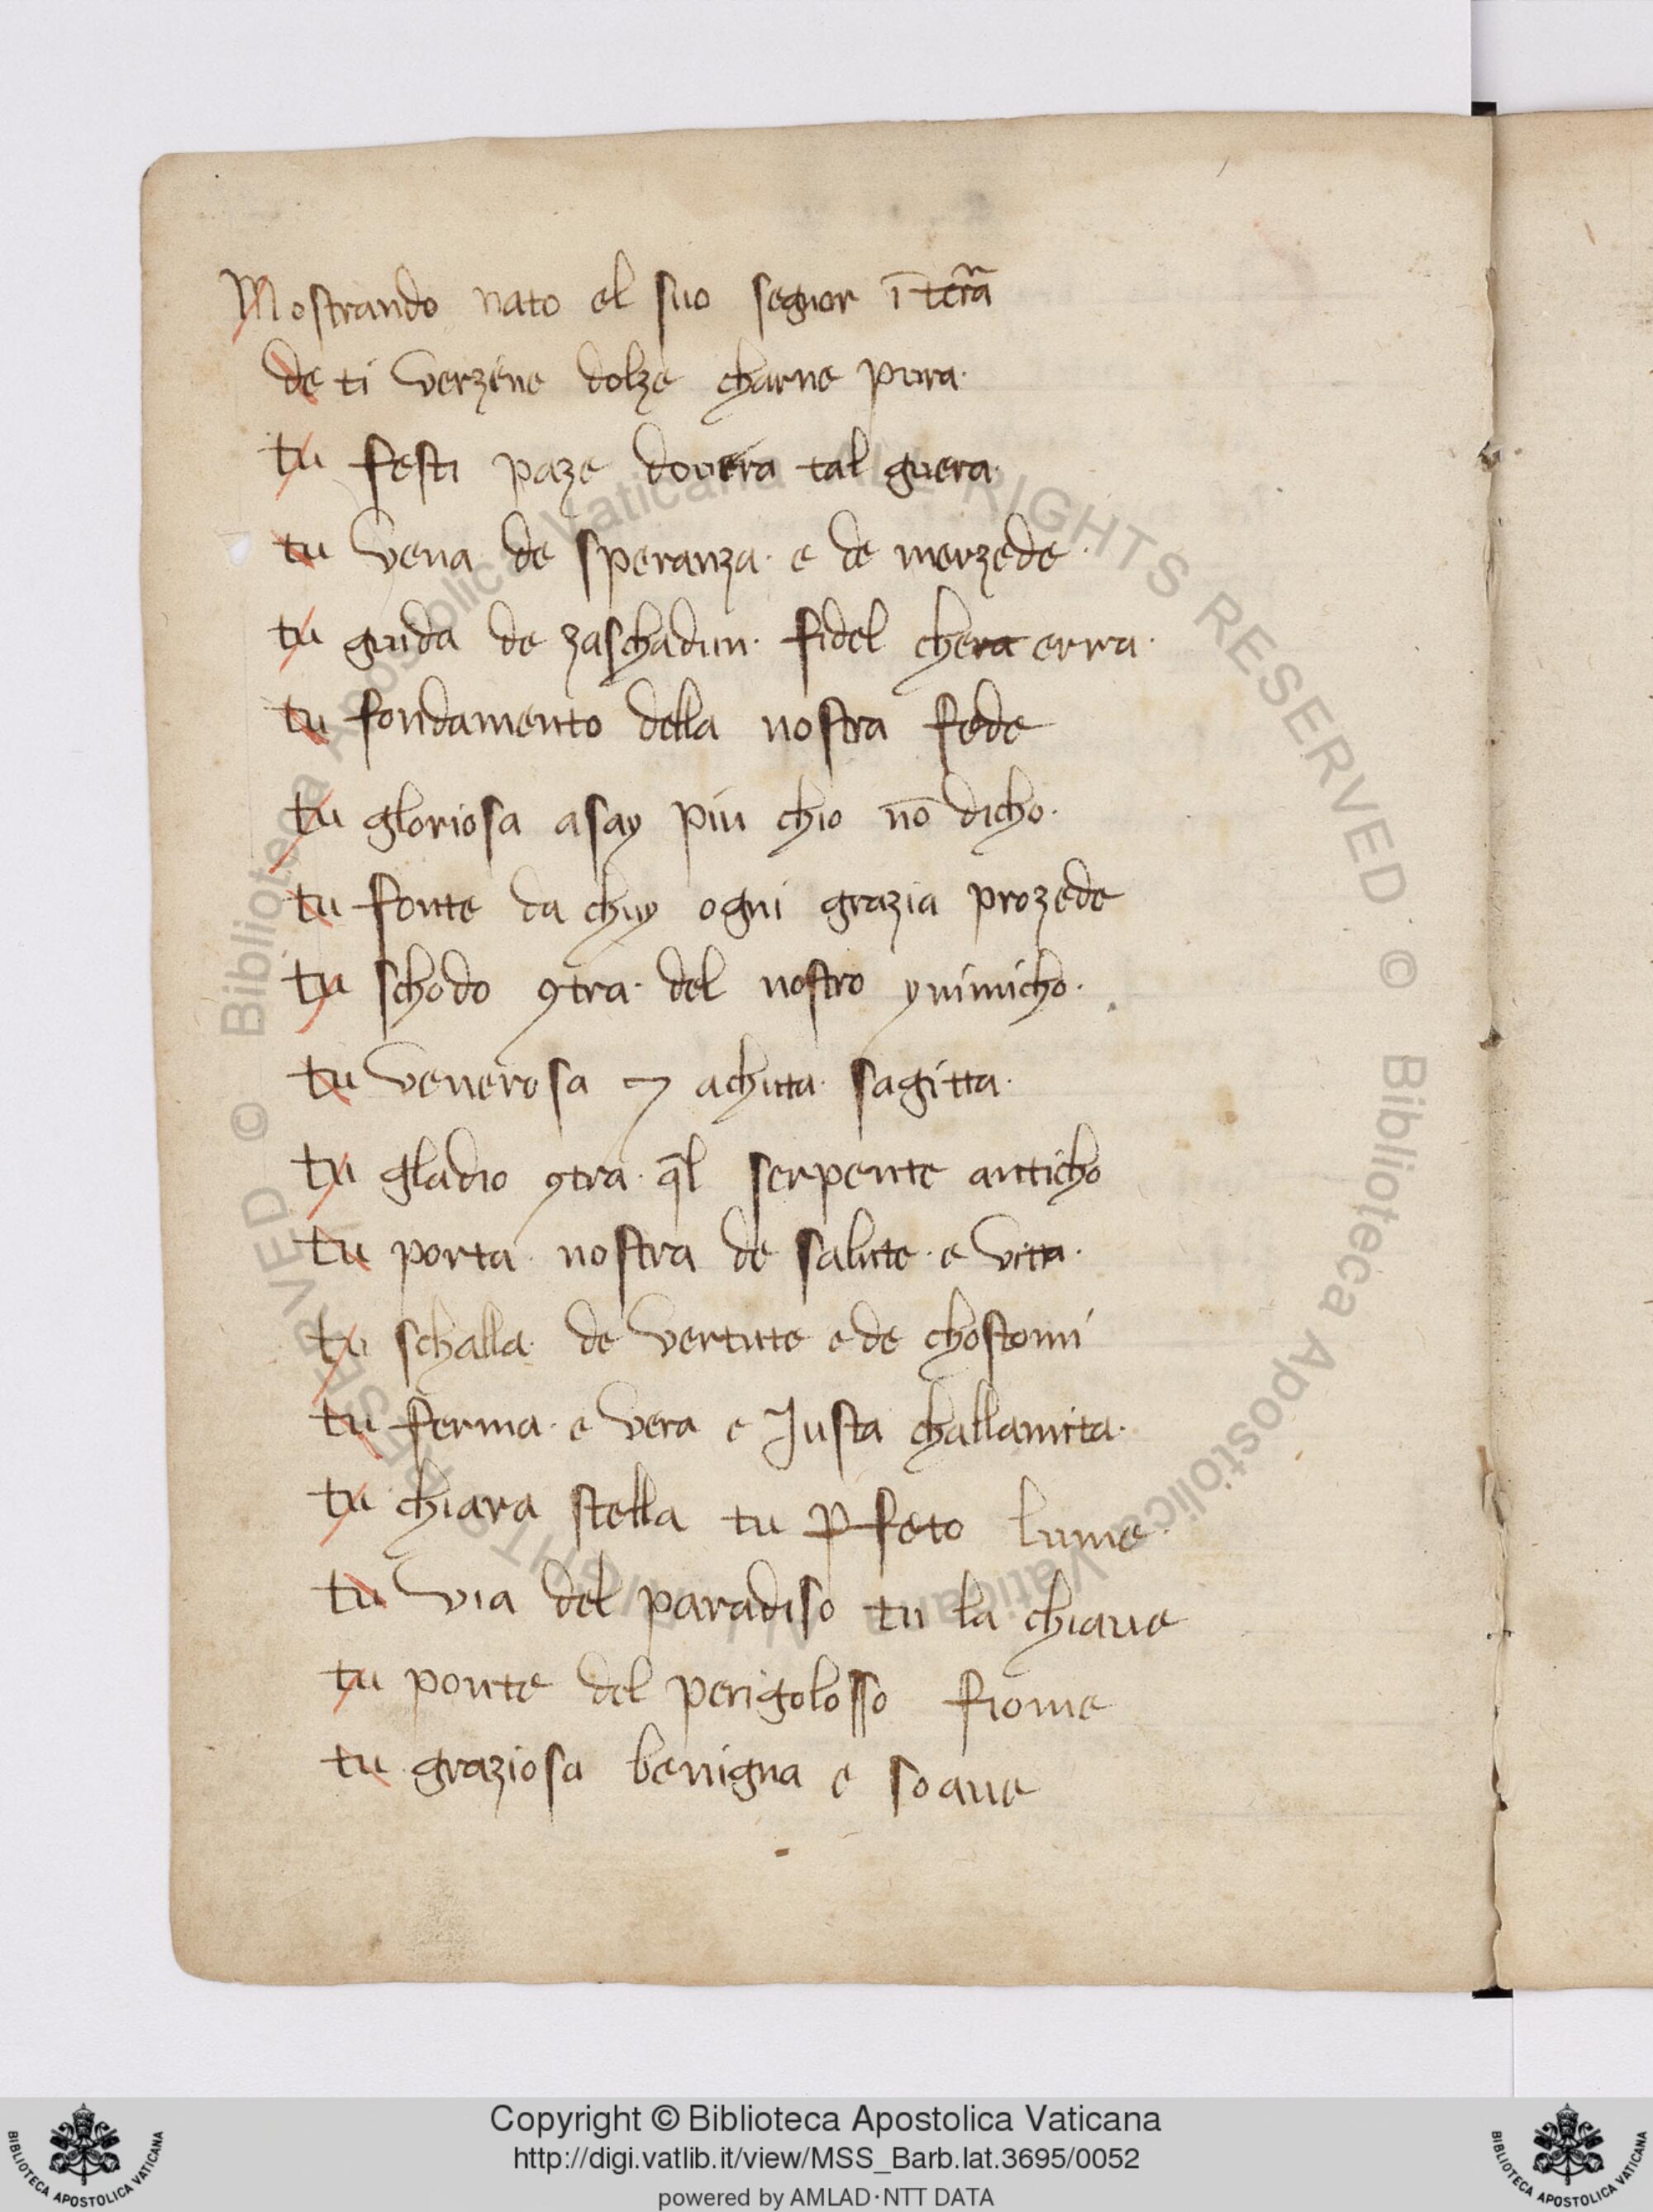 Mostrando nato el suo segnor ī terā
de ti verzene dolze charne pura·
tu festi paze douera tal guera·
tu vena de speranza· e de merzede·
tu guida de zaschadun· fidel chera erra·
tu fondamento della nostra fede
tu gloriosa asay piu chio nō dicho·
tu fonte da chuy ogni grazia prozede
tu schodo ꝯtra· del nostro ynimicho·
tu venerosa ⁊ achuta· sagitta·
tu gladio ꝯtra· q̄l serpente anticho
tu porta· nostra de salute· e vitta·
tu schalla· de vertute e de chostomi
tu ferma· e vera e Justa challamita·
tu chiara stella tu ꝑfeto lume·
tu via del paradiso tu la chiaue
tu ponte del perigolosso fiome
tu graziosa benigna e soaue
© Biblioteca Apostolica Vaticana ALL RIGHTS RESERVED © Biblioteca Apostolica Vaticana ALL RIGHTS RESERVED
Copyright © Biblioteca Apostolica Vaticana
http://digi.vatlib.it/view/MSS_Barb.lat.3695/0052
powered by AMLAD·NTT DATA
BIBLIOTECA APOSTOLICA VATICANA
BIBLIOTECA APOSTOLICA VATICANA